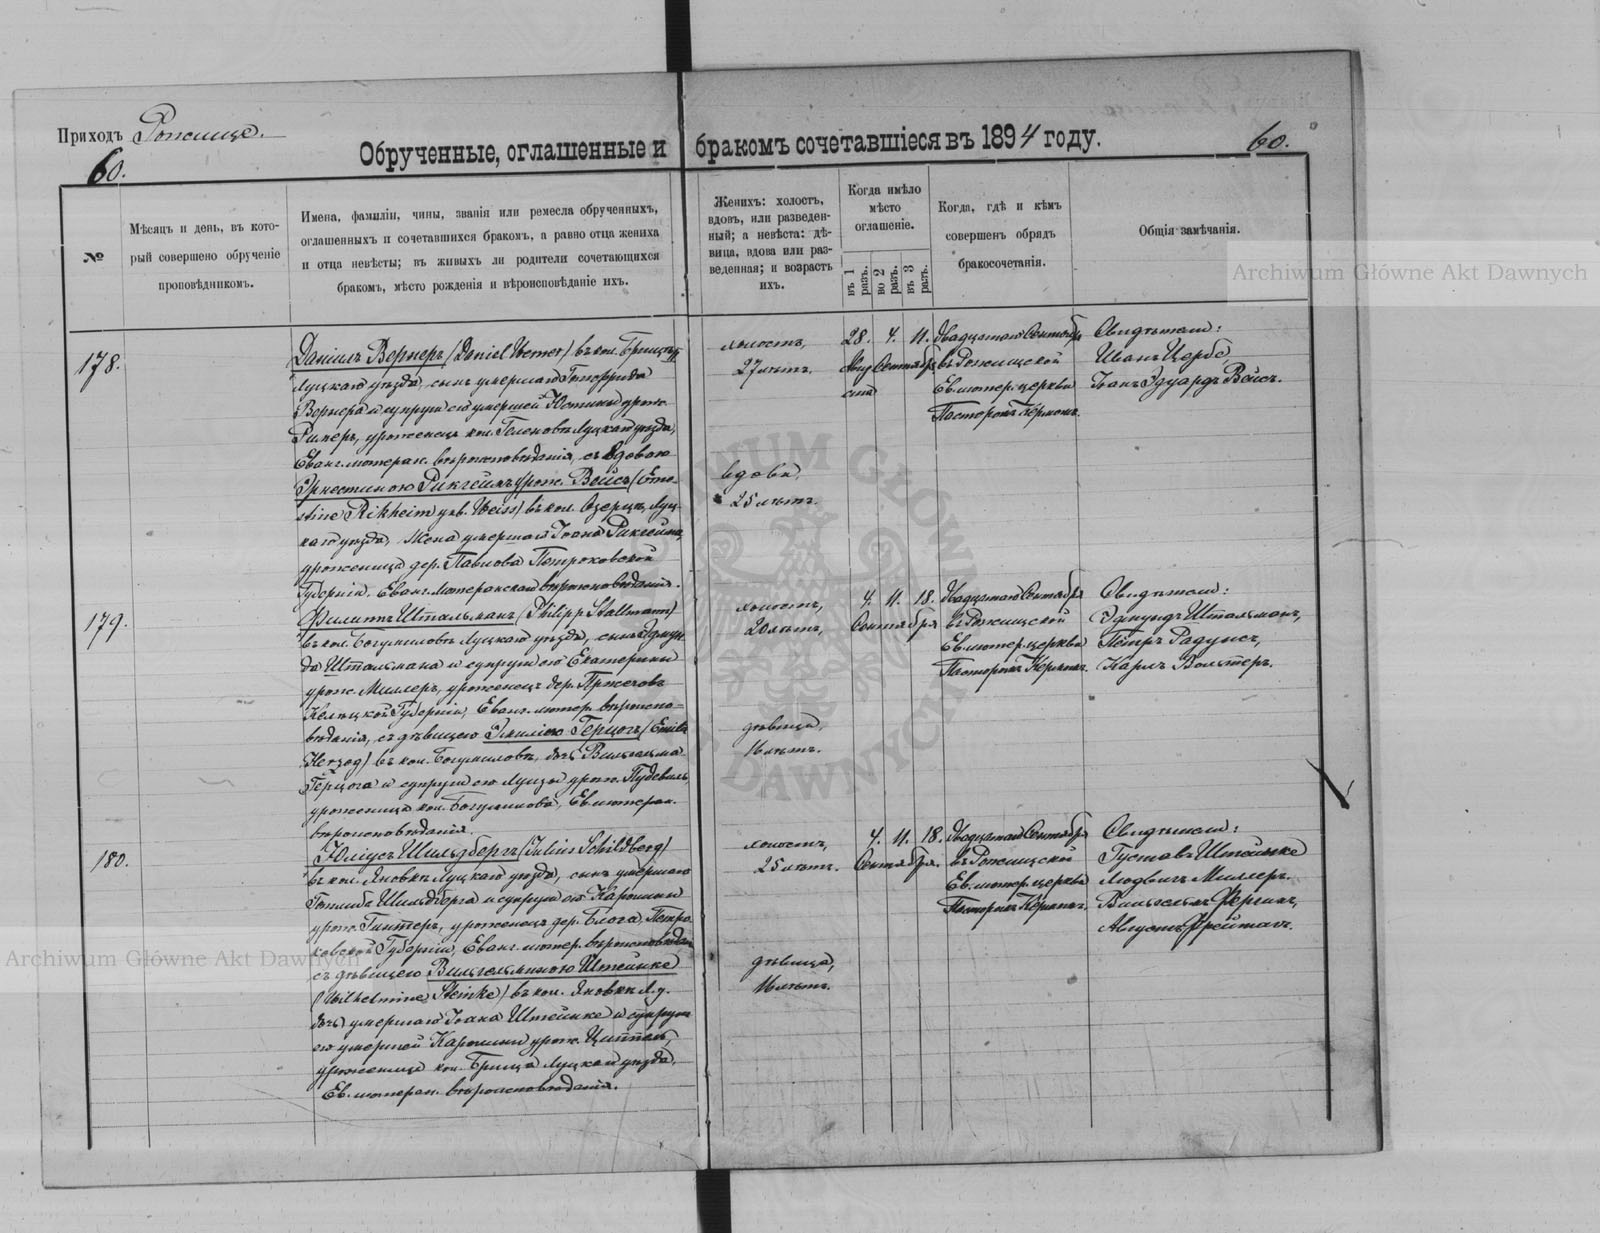 Приходъ Рожище.
60.
Обрученные, оглашенные и бракомъ сочетавшіеся въ 1894 году.
60.
№
Мѣсяцъ и день, въ кото-
рый совершено обрученіе
проповѣдникомъ.
Имена, фамиліи, чины, званія или ремесла обрученныхъ,
оглашенныхъ и сочетавшихся бракомъ, а равно отца жениха
и отца невѣсты; въ живыхъ ли родители сочетающихся
бракомъ, мѣсто рожденія и вѣроисповѣданіе ихъ.
Женихъ: холостъ,
вдовъ, или разведен-
ный; а невѣста: дѣ-
вица, вдова или раз-
веденная; и возрастъ
ихъ.
Когда имѣло
мѣсто
оглашеніе.
въ 1 разъ.
во 2 разъ.
въ 3 разъ.
Когда, гдѣ и кѣмъ
совершенъ обрядъ
бракосочетанія.
Общія замѣчанія.
178.
Даніилъ Вернеръ (Daniel Werner) въ кол. Брищахъ
Луцкаго уѣзда, сынъ умершаго Готфрида
Вернера и супруги его умершей Юстины урож.
уроженецъ кол. Геленовъ Луцкаго уѣзда,
Еванг. лютеран. вѣроисповѣданія, съ вдовою
Эрнестиною Рикгеймъ урож. Вейсъ (Erne-
stine Rikheim geb. Weiss) въ кол. Озерцъ, Луц-
каго уѣзда, жена умершаго Іоана Рикгейма,
уроженица дер. Павлова Петроковской
Губерніи, Еванг. Лютеранскаго вѣроисповѣданія.
холостъ,
27 лѣтъ.
вдова,
25 лѣтъ.
28. 4. 11.
Авгу Сентября
ста
Двадцатаго Сентября
въ Рожищской
Ев. лютер. церкви
Пасторомъ Керномъ.
Свидѣтели:
Иванъ Цербе
Іоанъ Эдуардъ Вейсъ.
179.
Филипъ Штальманъ (Philipp Stallmann)
въ кол. Богумиловъ Луцкаго уѣзда, сынъ Эдмун-
да Штальмана и супруги его Екатерины
урож. Миллеръ, уроженецъ дер.
Келецкой Губерніи, Еванг. лютер. вѣроиспо-
вѣданія, съ дѣвицею Эмиліею Герцогъ (Emilie
Herzog) въ кол. Богумиловъ, дочь Вильгельма
Герцога и супруги его Луизы урож.
уроженица кол. Богумилова, Ев. лютеран.
вѣроисповѣданія.
холостъ,
20 лѣтъ,
дѣвица,
16 лѣтъ.
4. 11. 18.
Сентября
Двадцатаго Сентября
въ Рожищской
Ев. лютер. церкви
Пасторомъ Керномъ.
Свидѣтели:
Эдмундъ Штальманъ,
Петръ Радунсъ,
Карлъ Вольтеръ.
180.
Юліусъ Шильдбергъ (Julius Schildberg)
въ кол. Яновкѣ Луцкаго уѣзда, сынъ умершаго
Готлиба Шильдберга и супруги его Каролины
урож. Гинтеръ, уроженецъ дер. Блога, Петро-
ковской Губерніи, Еванг. лютер. вѣроисповѣдан.
съ дѣвицею Вильгельминою Штейнке
(Wilhelmine Steinke) въ кол. Яновки Л. у.
дочь умершаго Іоана Штейнке и супруги
его умершей Каролины урож.
уроженица кол. Брища Луцкаго уѣзда,
Ев. лютеран. вѣроисповѣданія.
холостъ,
25 лѣтъ.
дѣвица,
16 лѣтъ.
4. 11. 18.
Сентября.
Двадцатаго Сентября
въ Рожищской
Ев. лютер. церкви
Пасторомъ Керномъ.
Свидѣтели:
Густавъ Штейнке
Людвигъ Миллеръ.
Вильгельмъ
Августъ Фрейтагъ.
Archiwum Główne Akt Dawnych
Archiwum Główne Akt Dawnych